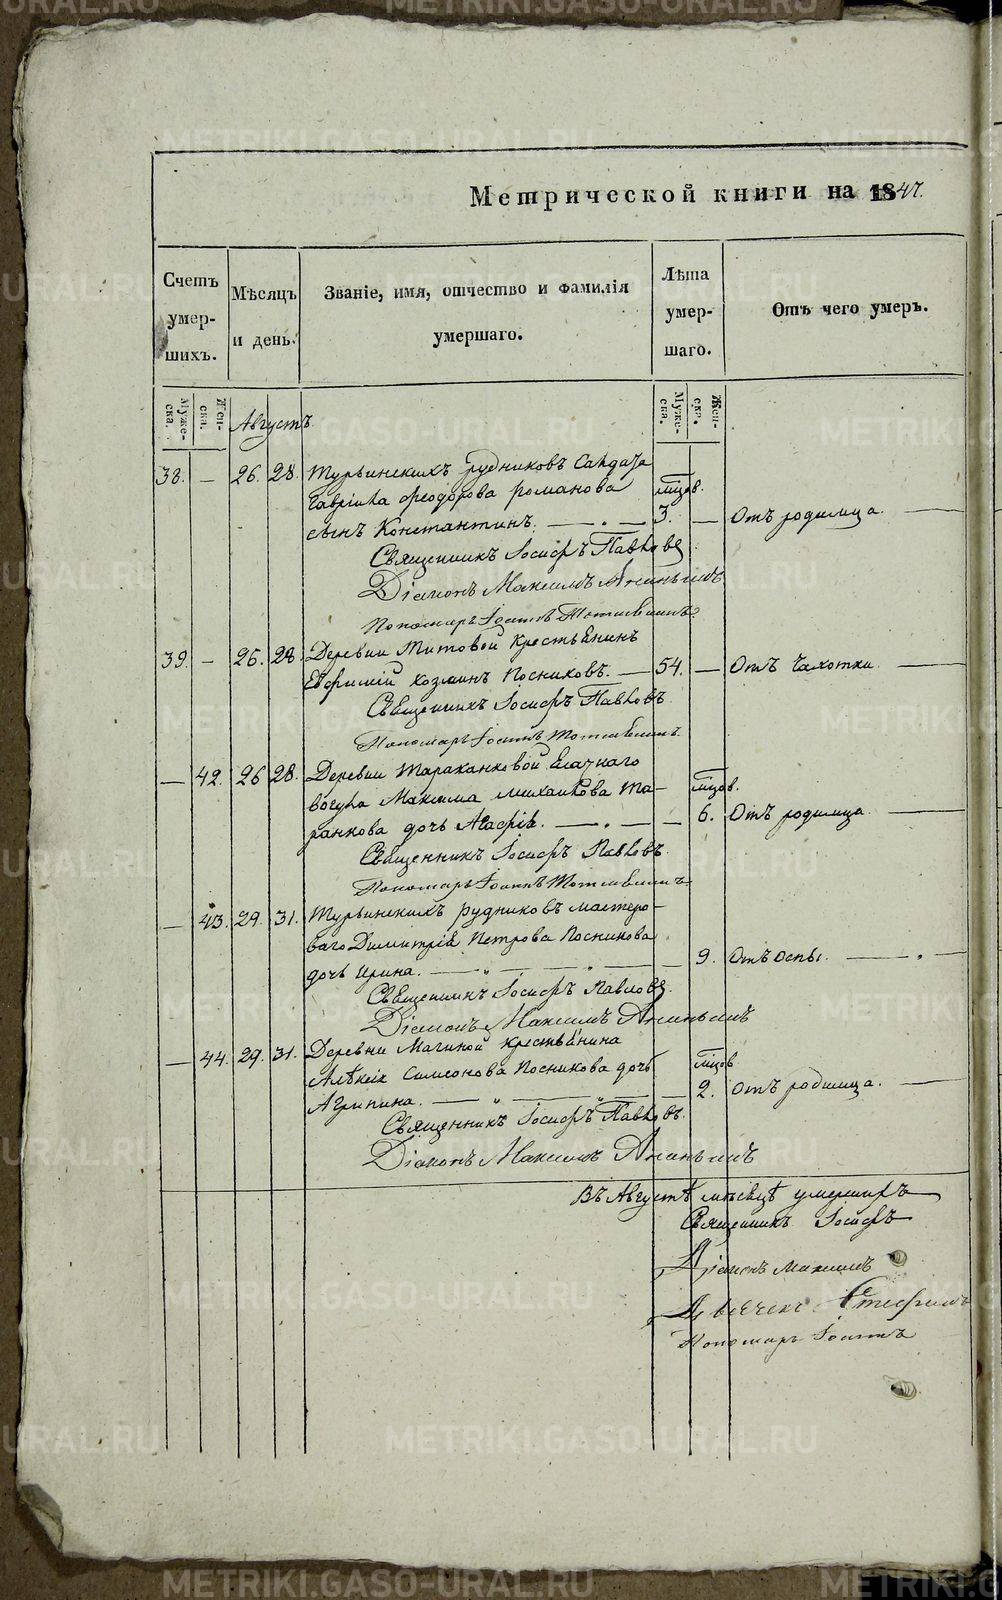 Метрической книги на 1847.
Счетъ умер-шихъ.
Мѣсяцъ и день.
Званіе, имя, отчество и фамилія умершаго.
Лѣта умер-шаго.
Отъ чего умеръ.
Муже-ска.
Жен-ска.
Августъ.
Муже-ска.
Жен-ска.
38. — 26. 28. Турьинскихъ рудниковъ Салдата
Гавріила Ѳеодорова Романова
мцов.
сынъ Константинъ. — 3. — Отъ родимца.
Священникъ Іосифъ Павловъ
Діаконъ Максимъ Ананьинъ
Пономарь Іоаннъ
39. — 26. 28. Деревни Титовой Крестьянинъ
Евфимій Козминъ Посниковъ. — 54. — Отъ Чахотки
Священникъ Іосифъ Павловъ
Пономарь Іоаннъ
— 42. 26 28. Деревни Таракановой Ясачнаго
Вогула Максима Михайлова Та-
мцов.
ранкова дочь Агафія. — 6. Отъ родимца
Священникъ Іосифъ Павловъ
Пономарь Іоаннъ
— 43. 29. 31. Турьинскихъ рудниковъ мастеро-
ваго Димитрія Петрова Посникова
дочь Ирина. — 9. Отъ Оспы.
Священникъ Іосифъ Павловъ
Діаконъ Максимъ Ананьинъ
— 44. 29. 31. Деревни Магиной Крестьянина
Алѣксія Симеонова Посникова дочь
мцов
Агрипина. — 2. Отъ родимца.
Священникъ Іосифъ Павловъ
Діаконъ Максимъ Ананьинъ
Въ Августѣ мѣсяцѣ умершихъ
Священникъ Іосифъ
Діаконъ Максимъ
Дьячекъ Стефанъ
Пономарь Іоаннъ
METRIKI.GASO-URAL.RU